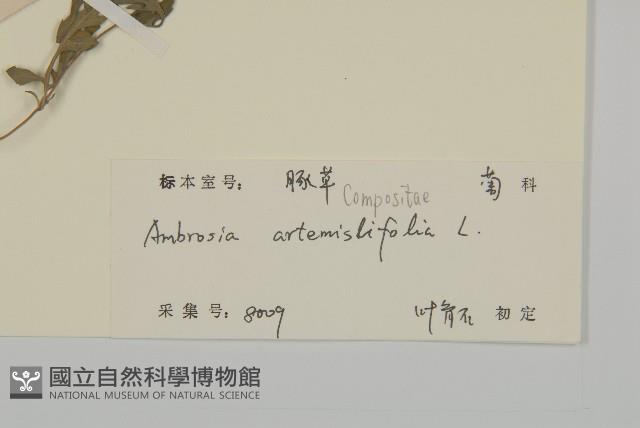 标本室号: 豚草 Compositae 菊 科
Ambrosia artemisiifolia L.
采集号: 8009 初定
國立自然科學博物館
NATIONAL MUSEUM OF NATURAL SCIENCE